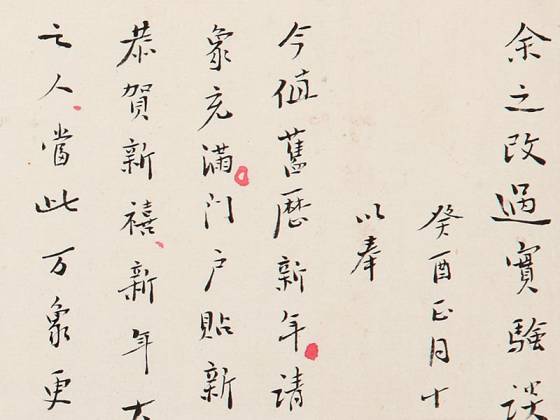 余之改過實驗談
癸酉正月十
以奉
今值舊曆新年請
象充滿门户貼新
恭賀新禧新年大
之人當此万象更